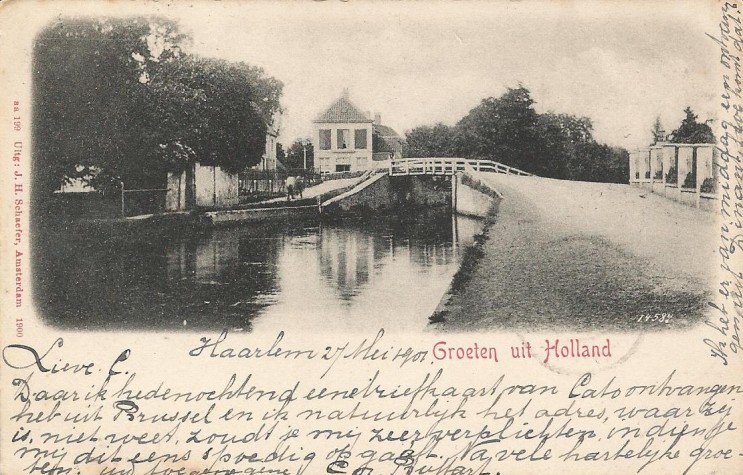 aa 199 Uitg: J. H. Schaefer, Amsterdam 1900
14584
Groeten uit Holland
Haarlem 27 Mei 1901
Lieve C.
Daar ik hedenochtend eene briefkaart van Cato ontvangen
heb uit Brussel en ik natuurlijk het adres, waar zij
is, niet weet, zoudt je mij zeer verplichten, indien je
mij dit eens spoedig op gaaft. Na vele hartelijke groe-
ten, uw toegenegene Cor
Ik het er van middag een ontvang
Dinant, hoe komt dat,